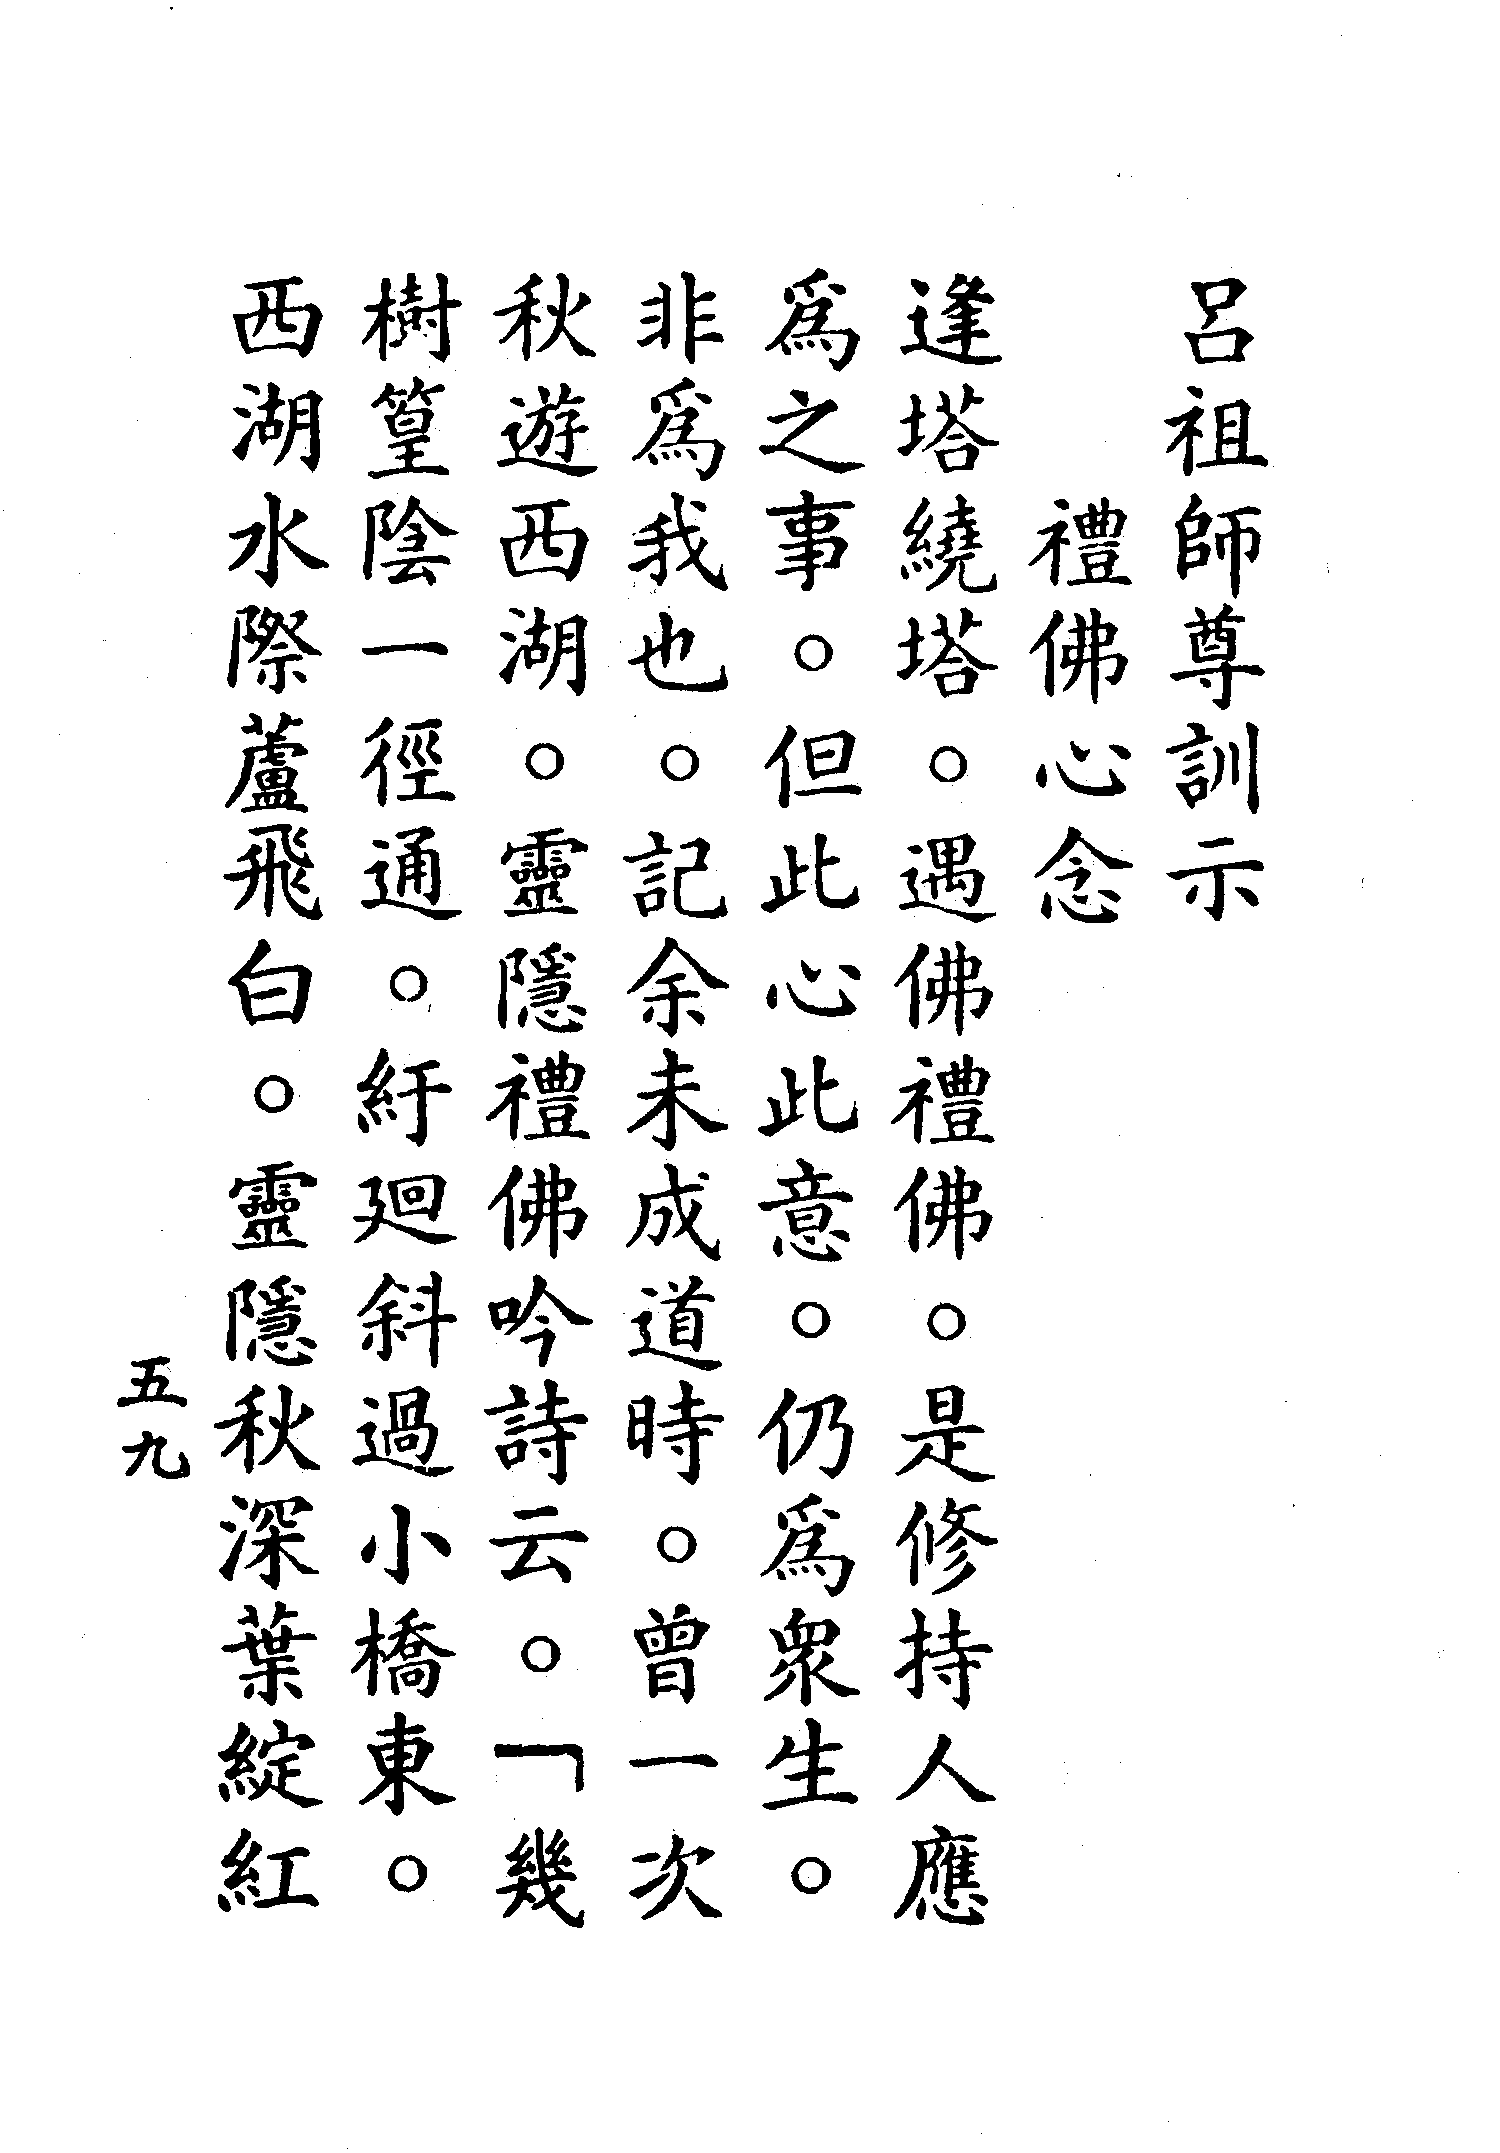 呂祖師尊訓示
禮佛心念
逢塔繞塔。遇佛禮佛。是修持人應
為之事。但此心此意。仍為眾生。
非為我也。記余未成道時。曾一次
秋遊西湖。靈隱禮佛吟詩云。「幾
樹篁陰一徑通。紆廻斜過小橋東。
西湖水際蘆飛白。靈隱秋深葉綻紅
五九